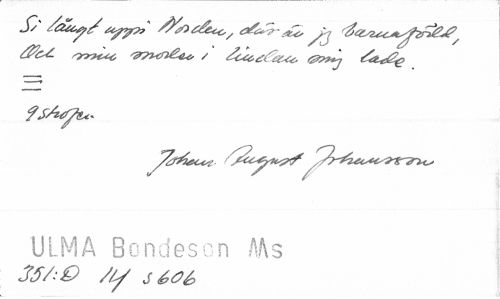 Si långt uppi Norden, där är jg barnaföдd,
Och min moder i lindan mig lade.
9 strofer
Johan August Johansson
ULMA Bondeson Ms
351:D 14 s 606